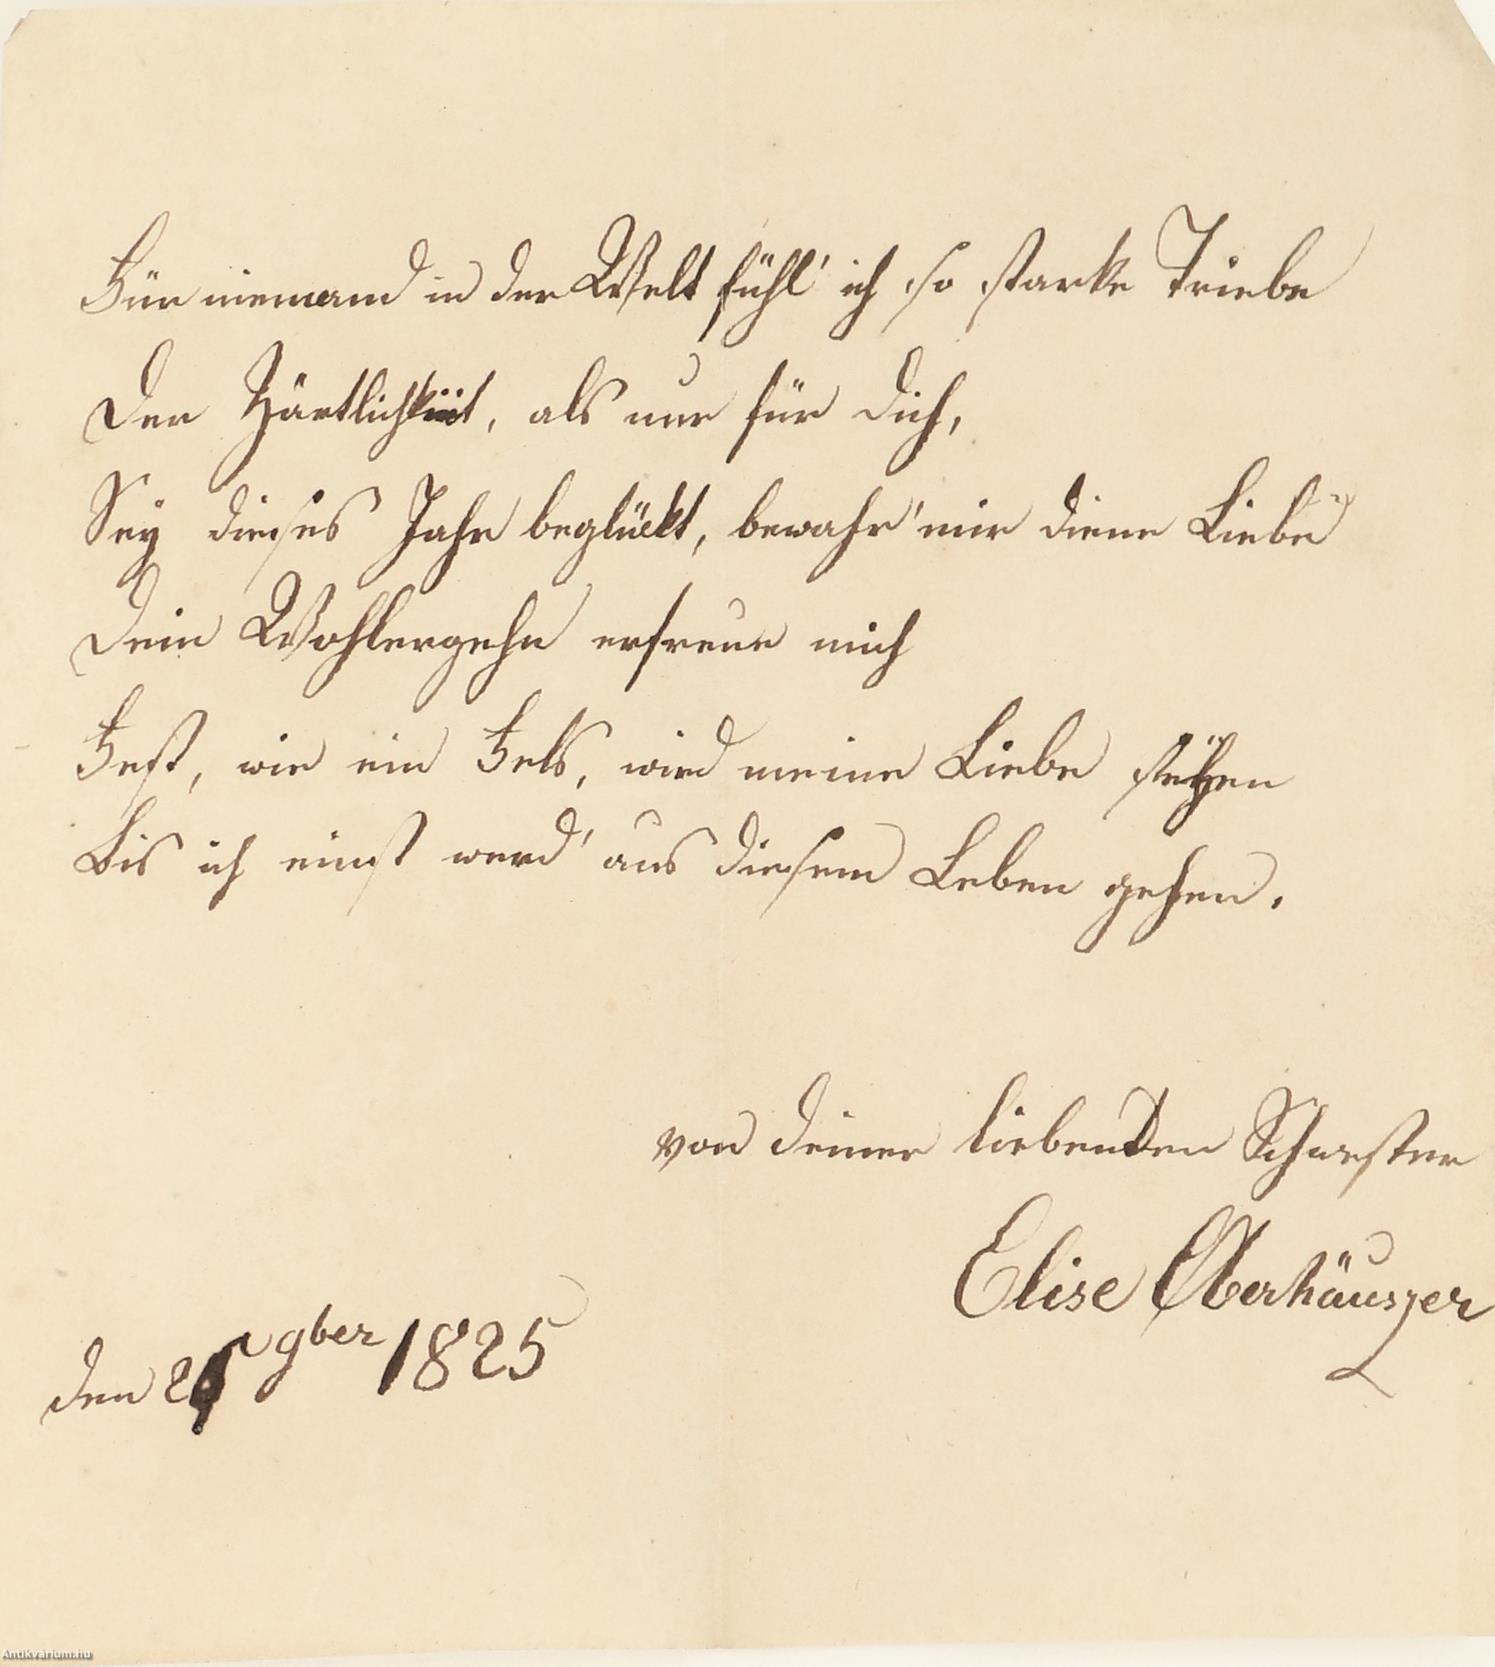 Für niemand in der Welt fühl' ich so starke Triebe
Der Zärtlichkeit, als nur für dich,
Sey dieses Jahr beglückt, bewahr' mir diene Liebe
Dein Wohlergehn erfreue mich
Fest, wie ein Fels, wird meine Liebe stehen
Bis ich einst werd' aus diesem Leben gehen.
von deiner liebenden Schwester
Elise Oberhäuszer
den 9ber 1825
Antikvarium.hu